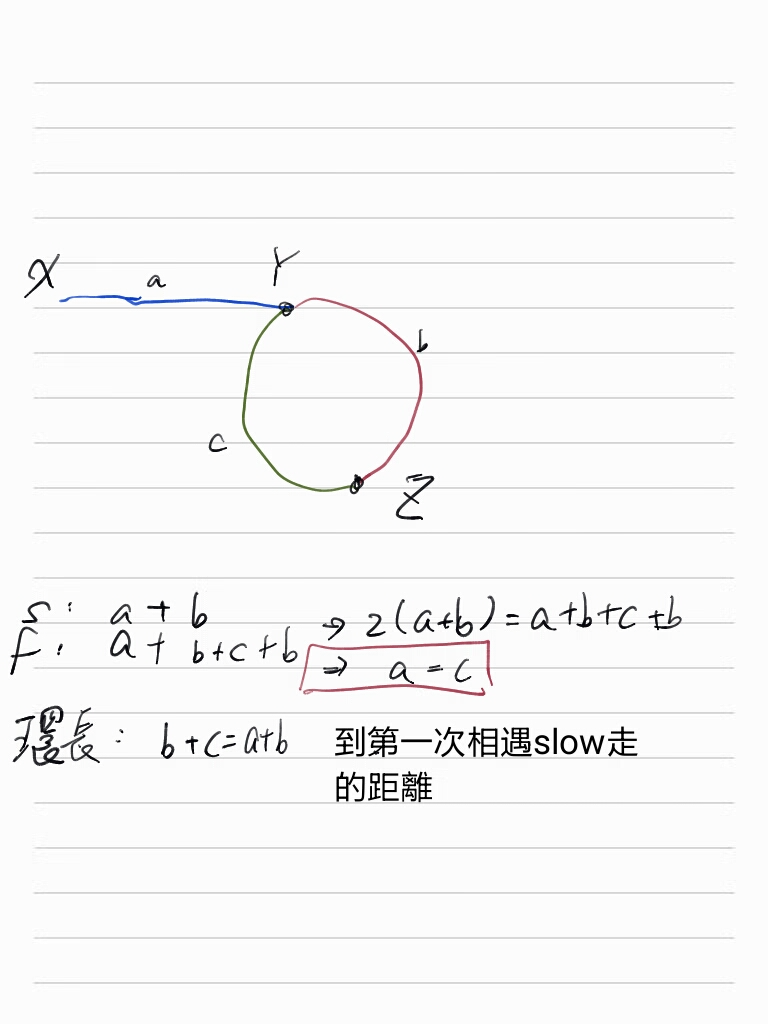 X a Y
b
c
Z
s: a + b
f: a + b+c+b
→ 2(a+b) = a+b+c+b
⇒ a = c
環長: b+c=a+b
到第一次相遇slow走
的距離